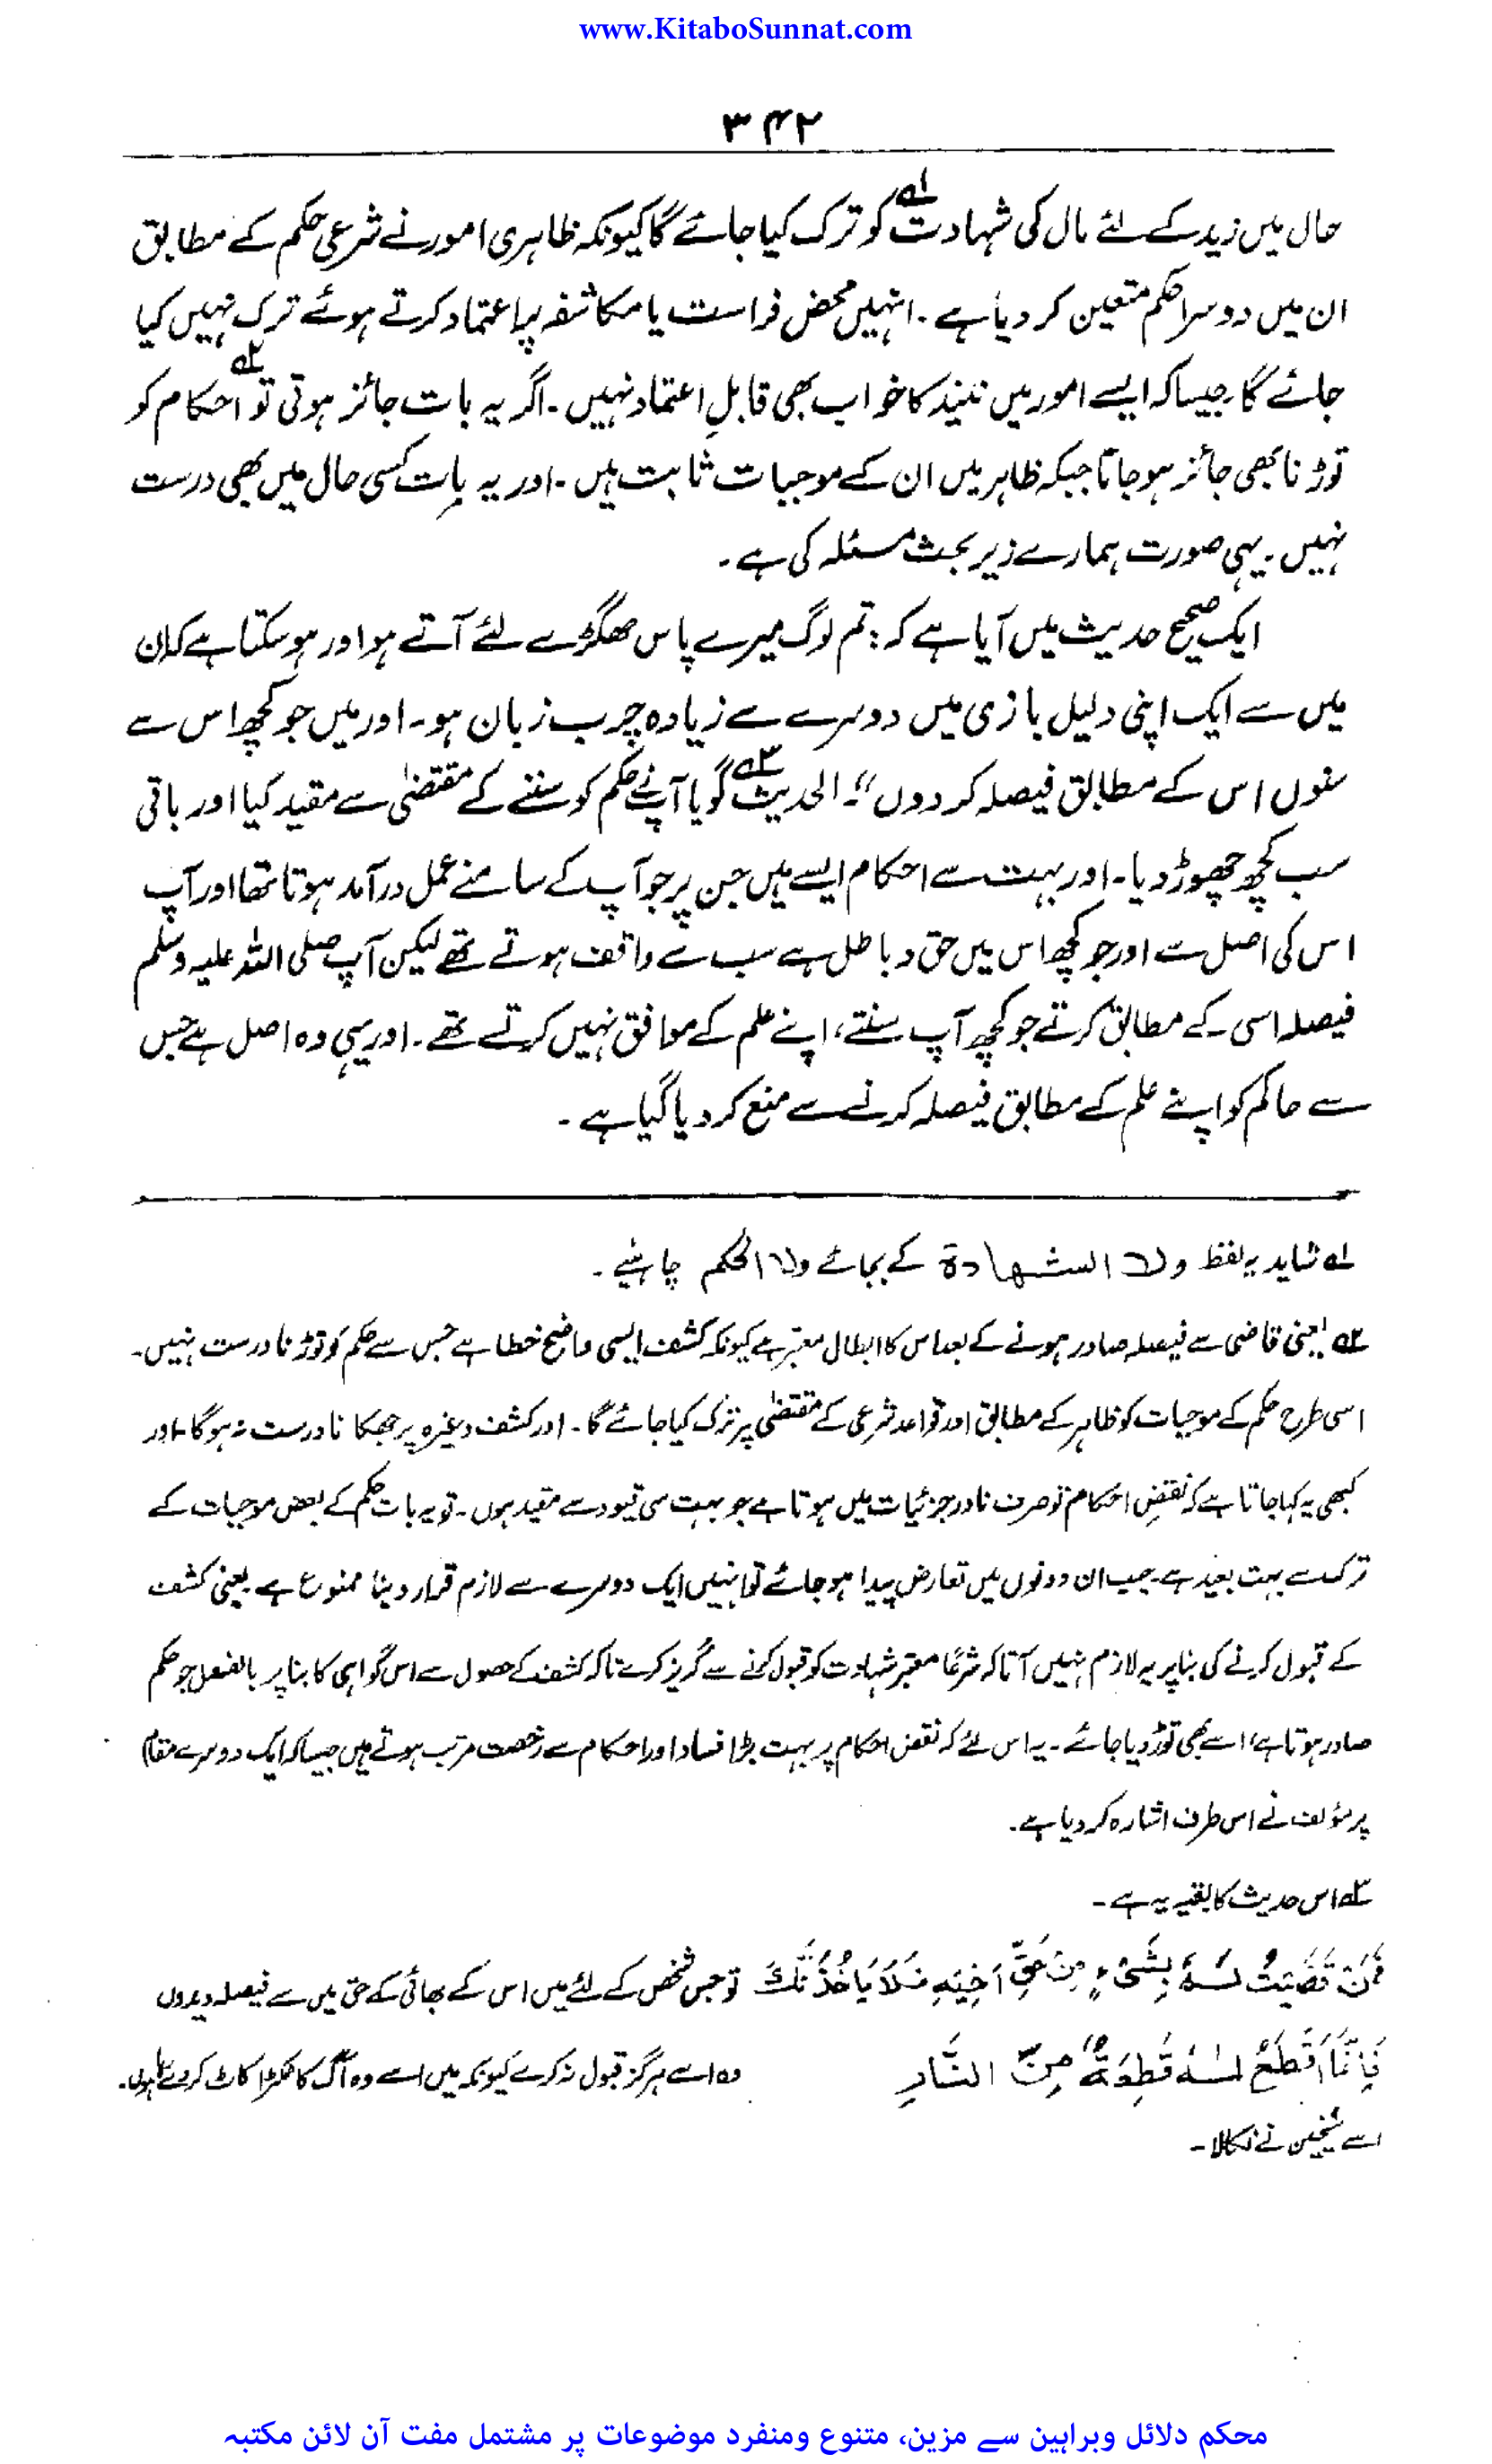 www.KitaboSunnat.com
۳۴۲
حال میں زید کے لئے مال کی شہادت۱؎ کو ترک کیا جائے گا کیونکہ ظاہری امور نے شرعی حکم کے مطابق
ان میں دوسرا حکم متعین کر دیا ہے۔ انہیں محض فراست یا مکاشفہ پر اعتماد کرتے ہوئے ترک نہیں کیا
جائے گا جیسا کہ ایسے امور میں نیند کا خواب بھی قابلِ اعتماد نہیں۔ اگر یہ بات جائز ہوتی تو۲؎ احکام کو
توڑنا بھی جائز ہو جاتا جبکہ ظاہر میں ان کے موجبات ثابت ہیں۔ اور یہ بات کسی حال میں بھی درست
نہیں۔ یہی صورت ہمارے زیر بحث مسئلہ کی ہے۔
ایک صحیح حدیث میں آیا ہے کہ: تم لوگ میرے پاس جھگڑے لئے آتے ہو اور ہو سکتا ہے کہ ان
میں سے ایک اپنی دلیل بازی میں دوسرے سے زیادہ چرب زبان ہو۔ اور میں جو کچھ اس سے
سنوں اس کے مطابق فیصلہ کر دوں"۔ الحدیث۳؎ گویا آپ نے حکم کو سننے کے مقتضیٰ سے مقید کیا اور باقی
سب کچھ چھوڑ دیا۔ اور بہت سے احکام ایسے ہیں جن پر جو آپ کے سامنے عمل درآمد ہوتا تھا اور آپ
اس کی اصل سے اور جو کچھ اس میں حق و باطل ہے سب سے واقف ہوتے تھے لیکن آپ صلی اللہ علیہ وسلم
فیصلہ اسی کے مطابق کرتے جو کچھ آپ سنتے، اپنے علم کے موافق نہیں کرتے تھے۔ اور یہی وہ اصل ہے جس
سے حاکم کو اپنے علم کے مطابق فیصلہ کرنے سے منع کر دیا گیا ہے۔
۱؎ شاید یہ لفظ ولا الشهادة کے بجائے ولا الحكم چاہئیے۔
۲؎ یعنی قاضی سے فیصلہ صادر ہونے کے بعد اس کا ابطال معتبر ہے کیونکہ کشف ایسی واضح خطا ہے جس سے حکم کو توڑنا درست نہیں۔
اسی طرح حکم کے موجبات کو ظاہر کے مطابق اور قواعد شرعی کے مقتضیٰ پر ترک کیا جائے گا۔ اور کشف وغیرہ پر جھکنا درست نہ ہوگا، اور
کبھی یہ کہا جاتا ہے کہ نقضِ احکام تو صرف نادر جزئیات میں ہوتا ہے جو بہت سی قیود سے مقید ہوں۔ تو یہ بات حکم کے بعض موجبات کے
ترک سے بہت بعید ہے۔ جب ان دونوں میں تعارض پیدا ہو جائے تو انہیں ایک دوسرے سے لازم قرار دینا ممنوع ہے یعنی کشف
کے قبول کرنے کی بنا پر یہ لازم نہیں آتا کہ شرعًا معتبر شہادت کو قبول کرنے سے گریز کرے تاکہ کشف کے حصول سے اس گواہی کا بنا پر بالفعل جو حکم
صادر ہوتا ہے، اسے بھی توڑ دیا جائے۔ یہ اس لئے کہ نقض احکام پر بہت بڑا فساد اور احکام سے رخصت مرتب ہوتے ہیں جیسا کہ ایک دوسرے مقام
پر مؤلف نے اس طرف اشارہ کر دیا ہے۔
۳؎ اس حدیث کا بقیہ یہ ہے۔
فَمَنْ قَضَيْتُ لَهُ بِشَيْءٍ مِنْ حَقِّ اَخِيْهِ فَلَا يَاْخُذَنَّكَ تو جس شخص کے لئے میں اس کے بھائی کے حق میں سے فیصلہ دیدوں
فَاِنَّمَا اَقْطَعُ لَهُ قِطْعَةً مِنَ النَّارِ وہ اسے ہرگز قبول نہ کرے کیونکہ میں اسے وہ آگ کا ٹکڑا کاٹ کر دے رہا ہوں۔
اسے شیخین نے نکالا۔
محکم دلائل وبراہین سے مزین، متنوع ومنفرد موضوعات پر مشتمل مفت آن لائن مکتبہ